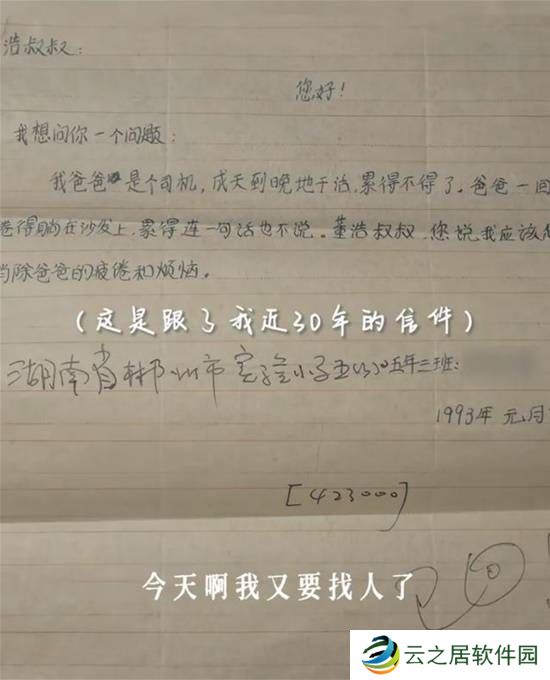 浩叔叔:
您好!
我想问你一个问题:
我爸爸是个司机,成天到晚地干活,累得不得了。爸爸一回
倦得躺在沙发上,累得连一句话也不说。董浩叔叔,您说我应该怎
当除爸爸的疲倦和烦恼。
(这是跟了我近30年的信件)
湖南省郴州市实验小学五(三)五年三班:
1993年 元月
[423000]
今天啊我又要找人了
云之居软件园